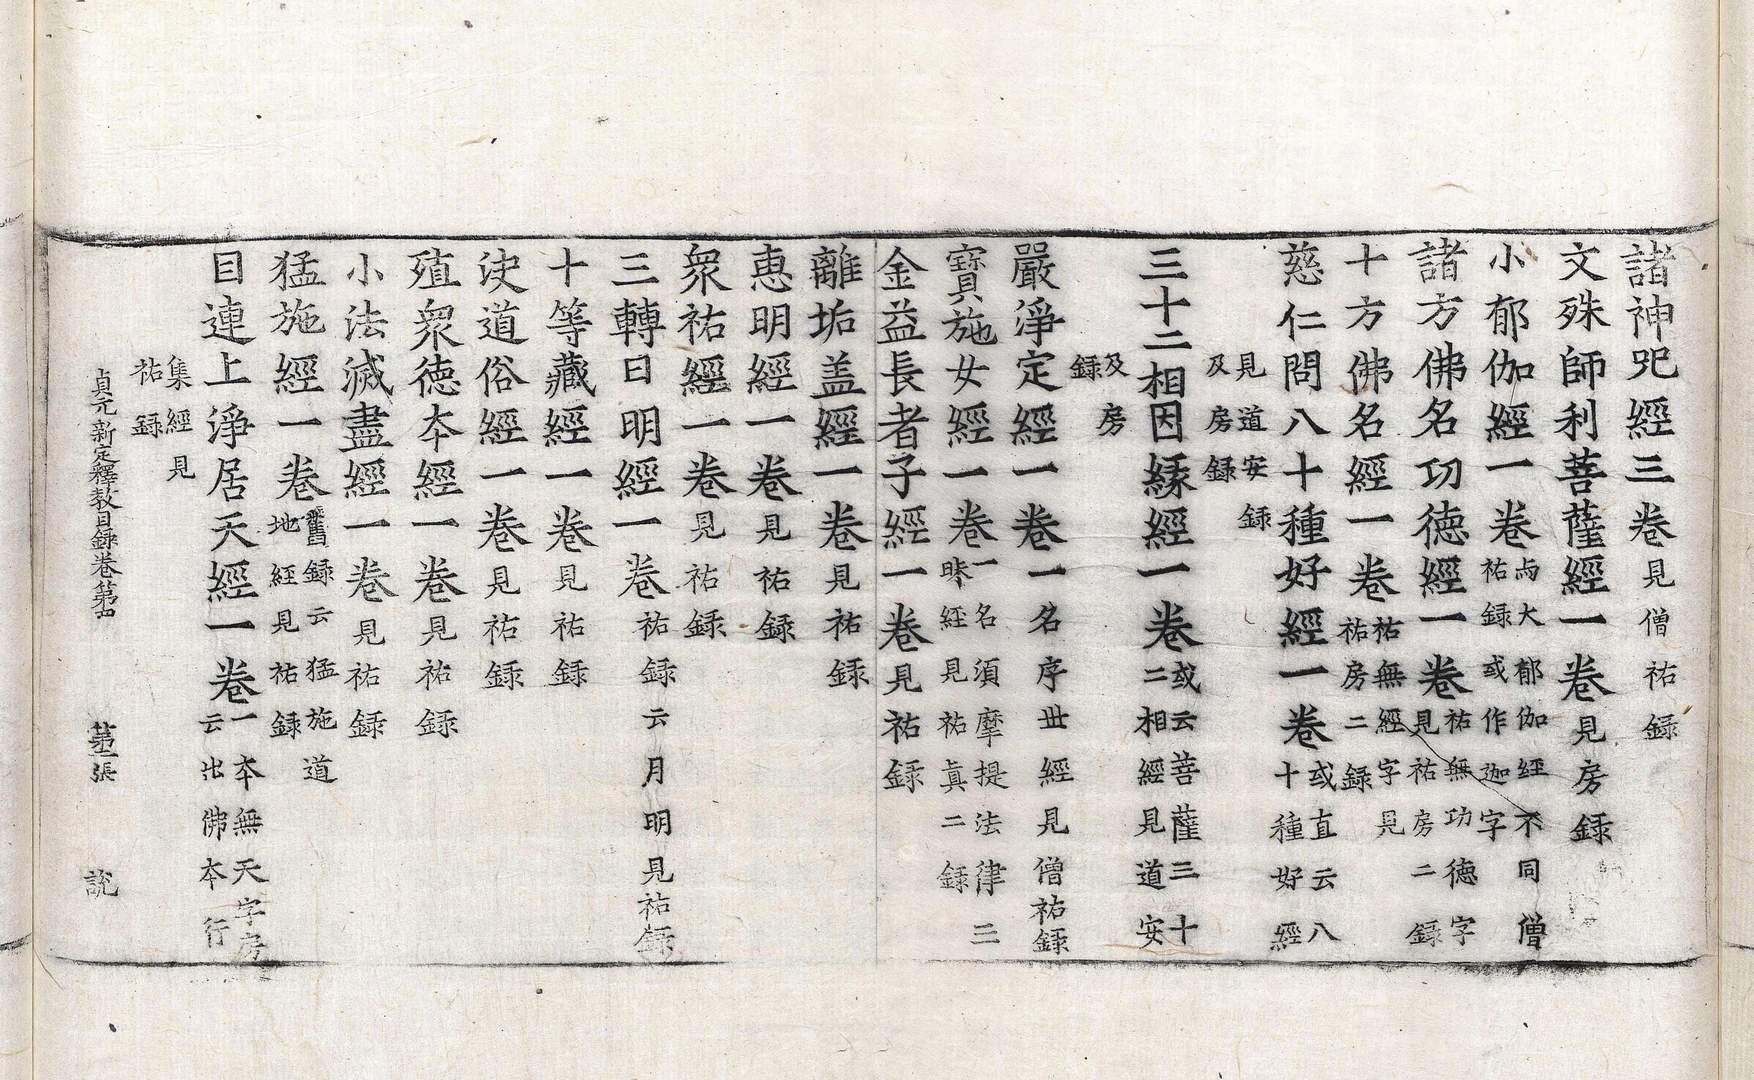 諸神呪經三卷見僧祐録
文殊師利菩薩經一卷見房録
小郁伽經一卷与大郁伽經不同僧
祐録或作迦字
諸方佛名功徳經一卷祐無功徳字
見祐房二録
十方佛名經一卷祐無經字見
祐房二録
慈仁問八十種好經一卷或直云八
十種好經
見道安録
及房録
三十二相因縁經一卷或云菩薩三十
二相經見道安
及房
録
嚴淨定經一卷一名序丗經見僧祐録
寶施女經一卷一名須摩提法律三
昧經見祐眞二録
金益長者子經一卷見祐録
離垢盖經一卷見祐録
恵明經一卷見祐録
衆祐經一卷見祐録
三轉日明經一卷祐録云月明見祐録
十等藏經一卷見祐録
决道俗經一卷見祐録
殖衆徳夲經一卷見祐録
小法滅盡經一卷見祐録
猛施經一卷舊録云猛施道
地經見祐録
目連上淨居天經一卷一夲無天字房
云出佛夲行
集經見
祐録
貞元新定釋教目録卷第四
第二張
說